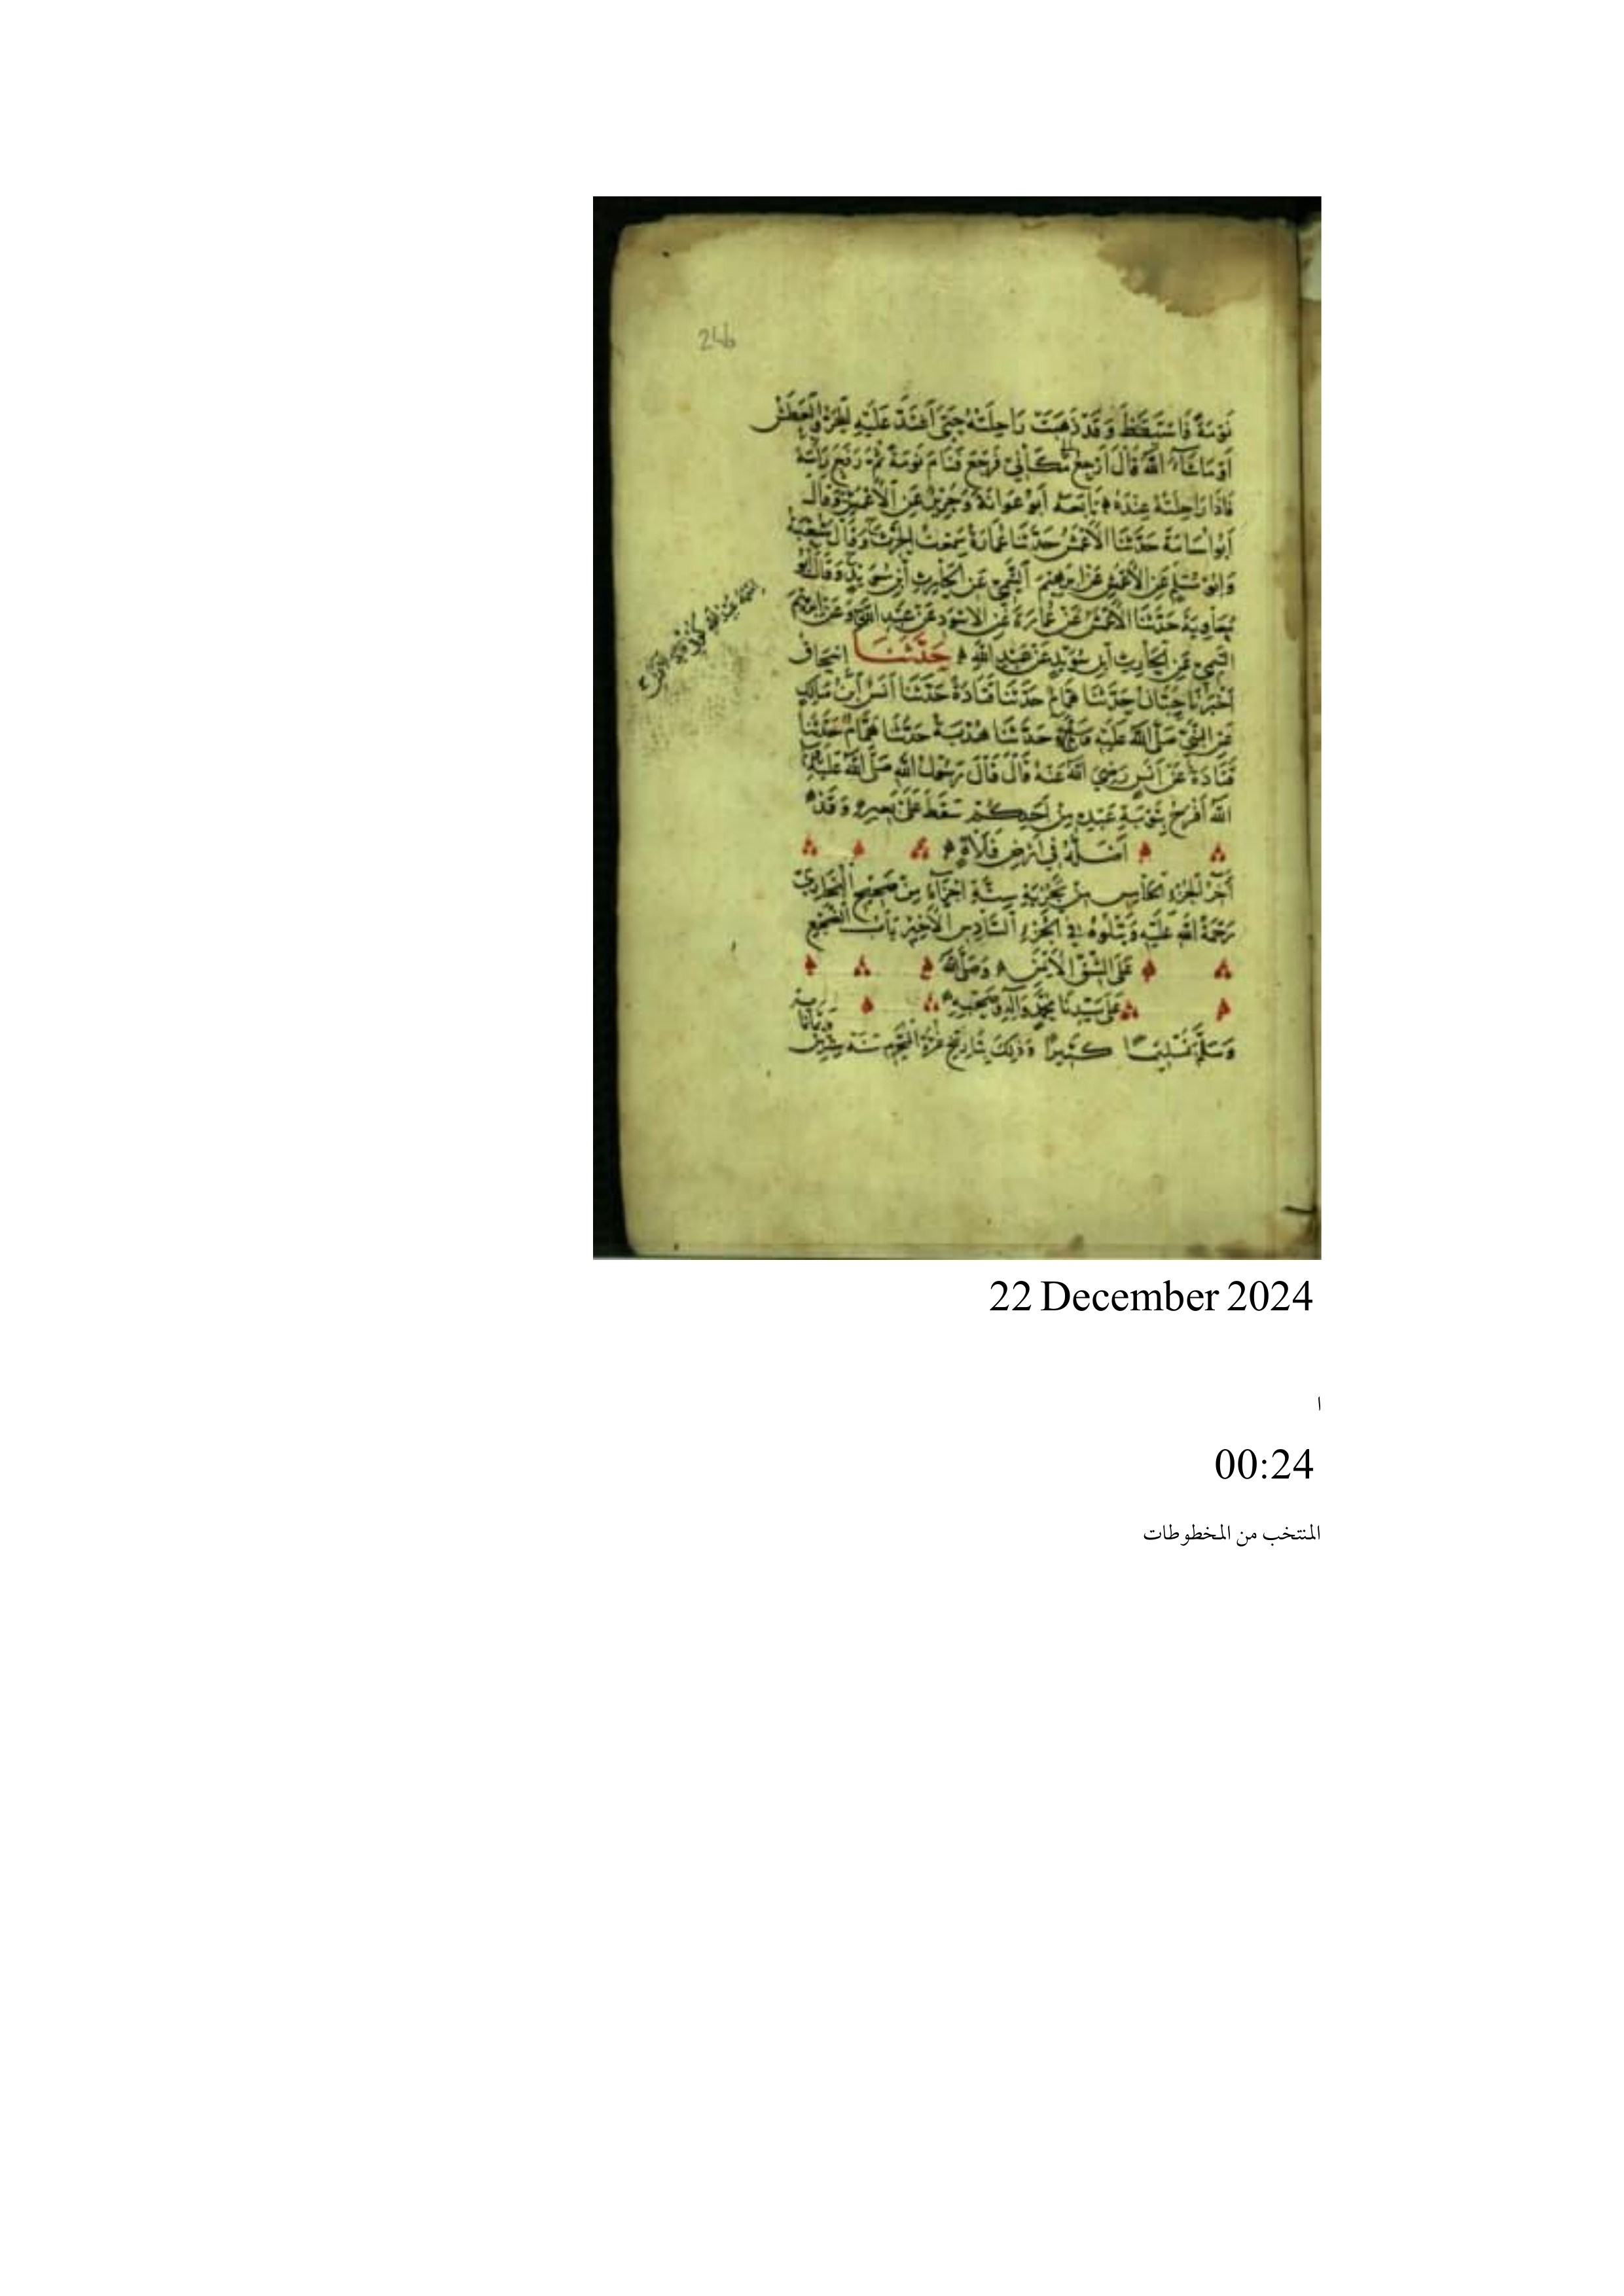 246
نَوْمَةً فَاسْتَيْقَظَ وَقَدْ ذَهَبَتْ رَاحِلَتُهُ حَتَّى اشْتَدَّ عَلَيْهِ الْحَرُّ وَالْعَطَشُ
أَوْ مَا شَاءَ اللَّهُ قَالَ أَرْجِعُ مَكَانِي فَرَجَعَ فَنَامَ نَوْمَةً ثُمَّ رَفَعَ رَأْسَهُ
فَإِذَا رَاحِلَتُهُ عِنْدَهُ تَابَعَهُ أَبُو عَوَانَةَ وَجَرِيرٌ عَنِ الْأَعْمَشِ وَقَالَ
أَبُو أُسَامَةَ حَدَّثَنَا الْأَعْمَشُ حَدَّثَنَا عُمَارَةُ سَمِعْتُ الْحٰرِثَ وَقَالَ شُعْبَةُ
وَأَبُو مُسْلِمٍ عَنِ الْأَعْمَشِ عَنْ إِبْرٰهِيمَ التَّيْمِيِّ عَنِ الْحَارِثِ ابْنِ سُوَيْدٍ وَقَالَ أَبُو
مُعَاوِيَةَ حَدَّثَنَا الْأَعْمَشُ عَنْ عُمَارَةَ عَنِ الْأَسْوَدِ عَنْ عَبْدِ اللَّهِ وَعَنْ إِبْرٰهِيمَ
التَّيْمِيِّ عَنِ الْحَارِثِ ابْنِ سُوَيْدٍ عَنْ عَبْدِ اللَّهِ حَدَّثَنَا إِسْحَاقُ
أَخْبَرَنَا حَبَّانُ حَدَّثَنَا هَمَّامٌ حَدَّثَنَا قَتَادَةُ حَدَّثَنَا أَنَسُ ابْنُ مَالِكٍ
عَنِ النَّبِيِّ صَلَّى اللَّهُ عَلَيْهِ حَدَّثَنَا هُدْبَةُ حَدَّثَنَا هَمَّامٌ حَدَّثَنَا
قَتَادَةُ عَنْ أَنَسٍ رَضِيَ اللَّهُ عَنْهُ قَالَ قَالَ رَسُولُ اللَّهِ صَلَّى اللَّهُ عَلَيْهِ
اللَّهُ أَفْرَحُ بِتَوْبَةِ عَبْدِهِ مِنْ أَحَدِكُمْ سَقَطَ عَلَى بَعِيرِهِ وَقَدْ
أَضَلَّهُ فِي أَرْضِ فَلَاةٍ
آخِرُ الْجُزْءِ الْخَامِسِ مِنْ تَجْزِيَةِ سِتَّةِ أَجْزَاءَ مِنْ صَحِيحِ الْبُخَارِيِّ
رَحْمَةُ اللَّهِ عَلَيْهِ وَيَتْلُوهُ فِي الْجُزْءِ السَّادِسِ الْأَخِيرِ بَابُ الضَّجْعِ
عَلَى الشِّقِّ الْأَيْمَنِ وَصَلَّى اللَّهُ
عَلَى سَيِّدِنَا مُحَمَّدٍ وَآلِهِ وَصَحْبِهِ
وَسَلَّمَ تَسْلِيمًا كَثِيرًا وَذَلِكَ بِتَارِيخِ غُرَّةِ الْمُحَرَّمِ سَنَةَ
22 December 2024
ا
00:24
المنتخب من المخطوطات